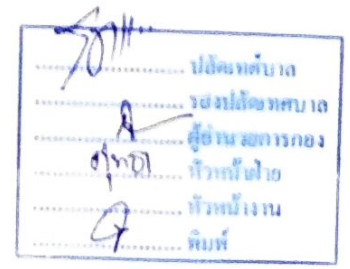 ปลัดเทศบาล
รองปลัดเทศบาล
ผู้อำนวยการกอง
หัวหน้าฝ่าย
หัวหน้างาน
พิมพ์